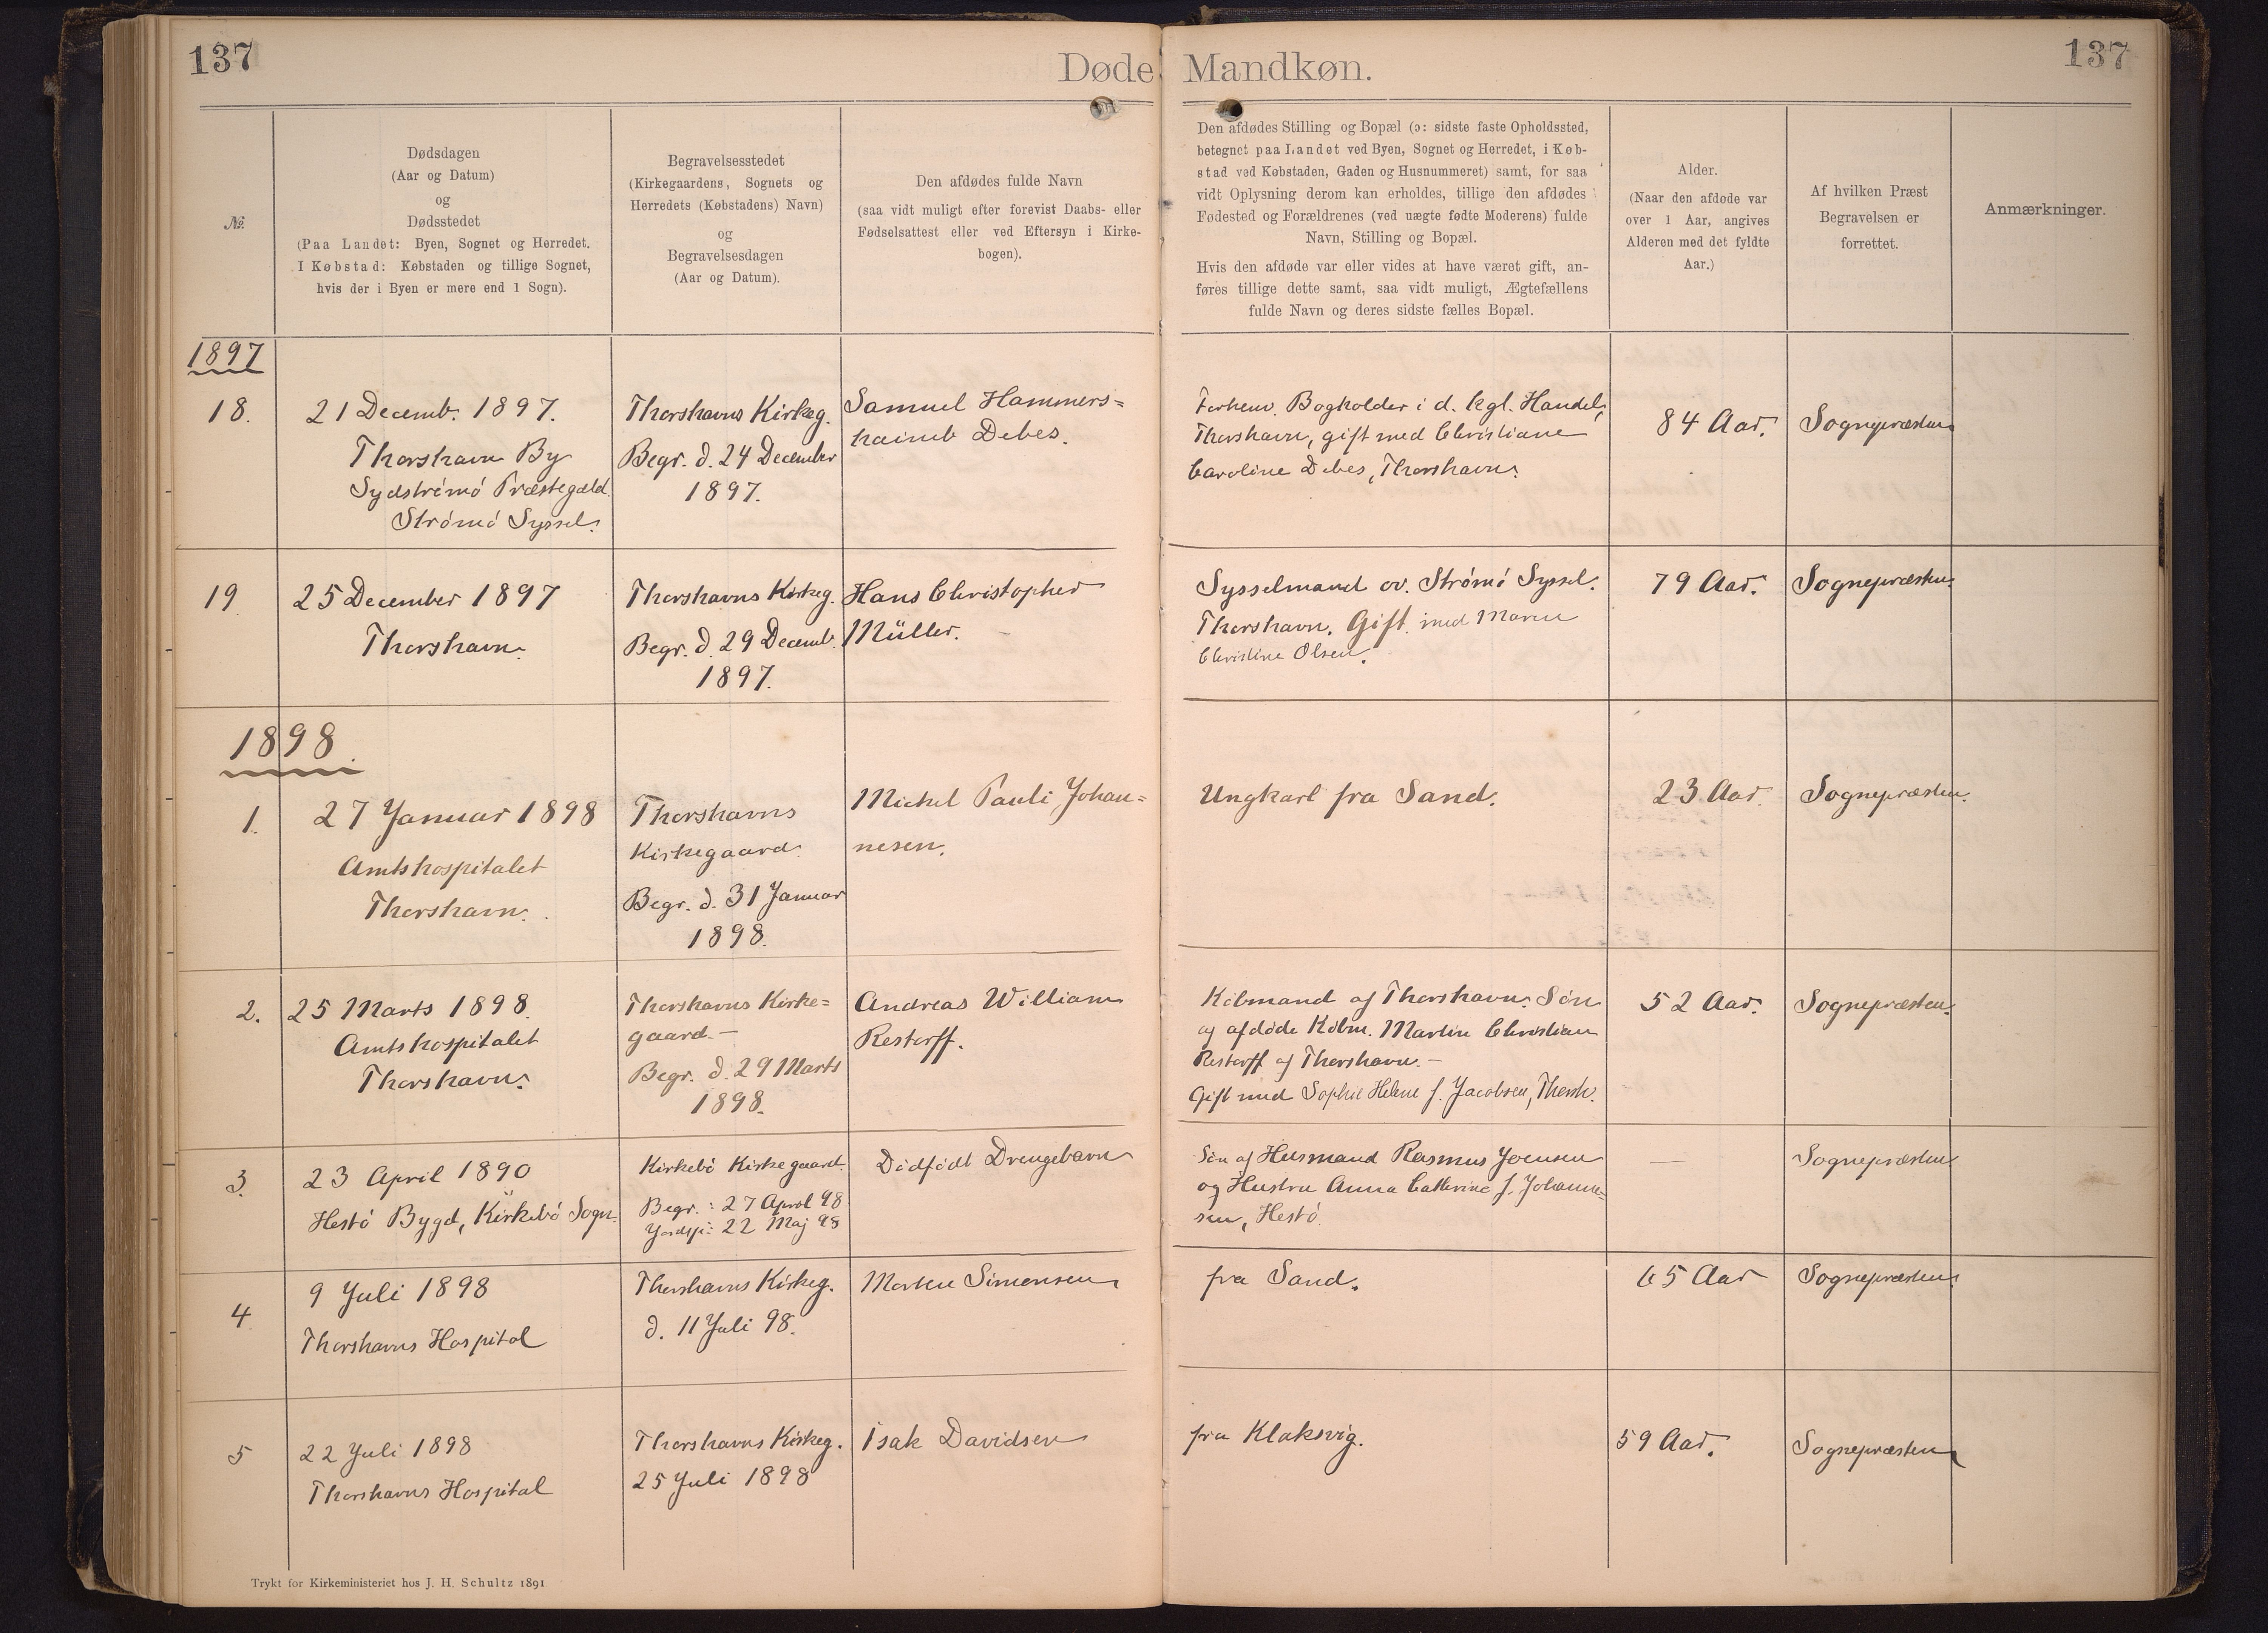 137
Døde Mandkøn.
137
№.
Dødsdagen
(Aar og Datum)
og
Dødsstedet
(Paa Landet: Byen, Sognet og Herredet.
I Købstad: Købstaden og tillige Sognet,
hvis der i Byen er mere end 1 Sogn).
Begravelsesstedet
(Kirkegaardens, Sognets og
Herredets (Købstadens) Navn)
og
Begravelsesdagen
(Aar og Datum).
Den afdødes fulde Navn
(saa vidt muligt efter forevist Daabs- eller
Fødselsattest eller ved Eftersyn i Kirke-
bogen).
Den afdødes Stilling og Bopæl (ɔ: sidste faste Opholdssted,
betegnet paa Landet ved Byen, Sognet og Herredet, i Køb-
stad ved Købstaden, Gaden og Husnummeret) samt, for saa
vidt Oplysning derom kan erholdes, tillige den afdødes
Fødested og Forældrenes (ved uægte fødte Moderens) fulde
Navn, Stilling og Bopæl.
Hvis den afdøde var eller vides at have været gift, an-
føres tillige dette samt, saa vidt muligt, Ægtefællens
fulde Navn og deres sidste fælles Bopæl.
Alder.
(Naar den afdøde var
over 1 Aar, angives
Alderen med det fyldte
Aar.)
Af hvilken Præst
Begravelsen er
forrettet.
Anmærkninger.
1897
18.
21 Decemb. 1897.
Thorshavn By
Sydströmö Præstegæld.
Strömö Syssel.
Thorshavns Kirkeg.
Begr. d. 24 December
1897.
Samuel Hammers=
haimb Debes.
Forhenv. Bogholder i d. kgl. Handel,
Thorshavn, gift med Christiane
Caroline Debes, Thorshavn.
84 Aar.
Sognepræsten
19.
25 December 1897
Thorshavn.
Thorshavns Kirkeg.
Begr. d. 29 Decemb.
1897.
Hans Christopher
Müller.
Sysselmand ov. Strömö Syssel.
Thorshavn. Gift med Maren
Christine Olsen.
79 Aar.
Sognepræsten.
1898.
1.
27 Januar 1898
Amtshospitalet
Thorshavn.
Thorshavns
Kirkegaard.
Begr. d. 31 Januar
1898.
Michel Pauli Johan=
nesen.
Ungkarl fra Sand.
23 Aar.
Sognepræsten.
2.
25 Marts 1898.
Amtshospitalet
Thorshavn.
Thorshavns Kirke=
gaard.—
Begr. d. 29 Marts
1898.
Andreas William
Restorff.
Köbmand af Thorshavn. Sön
af afdöde Köbm. Martin Christian
Restorff af Thorshavn.—
Gift med Sophie Helene f. Jacobsen, Thorsh.
52 Aar.
Sognepræsten.
3.
23 April 1890
Hestö Bygd, Kirkebö Sogn.
Kirkebö Kirkegaard.
Begr.: 27 April 98
Jordsp.: 22 Maj 98
Dödfödt Drengebarn
Sön af Husmand Rasmus Joensen
og Hustru Anna Cathrine f. Johanne=
sen, Hestö.
—
Sognepræsten
4.
9 Juli 1898
Thorshavns Hospital
Thorshavns Kirkeg.
d. 11 Juli 98.
Morten Simonsen
fra Sand.
65 Aar
Sognepræsten.
5
22 Juli 1898
Thorshavns Hospital
Thorshavns Kirkeg.
25 Juli 1898
Isak Davidsen
fra Klaksvig.
59 Aar.
Sognepræsten
Trykt for Kirkeministeriet hos J. H. Schultz 1891